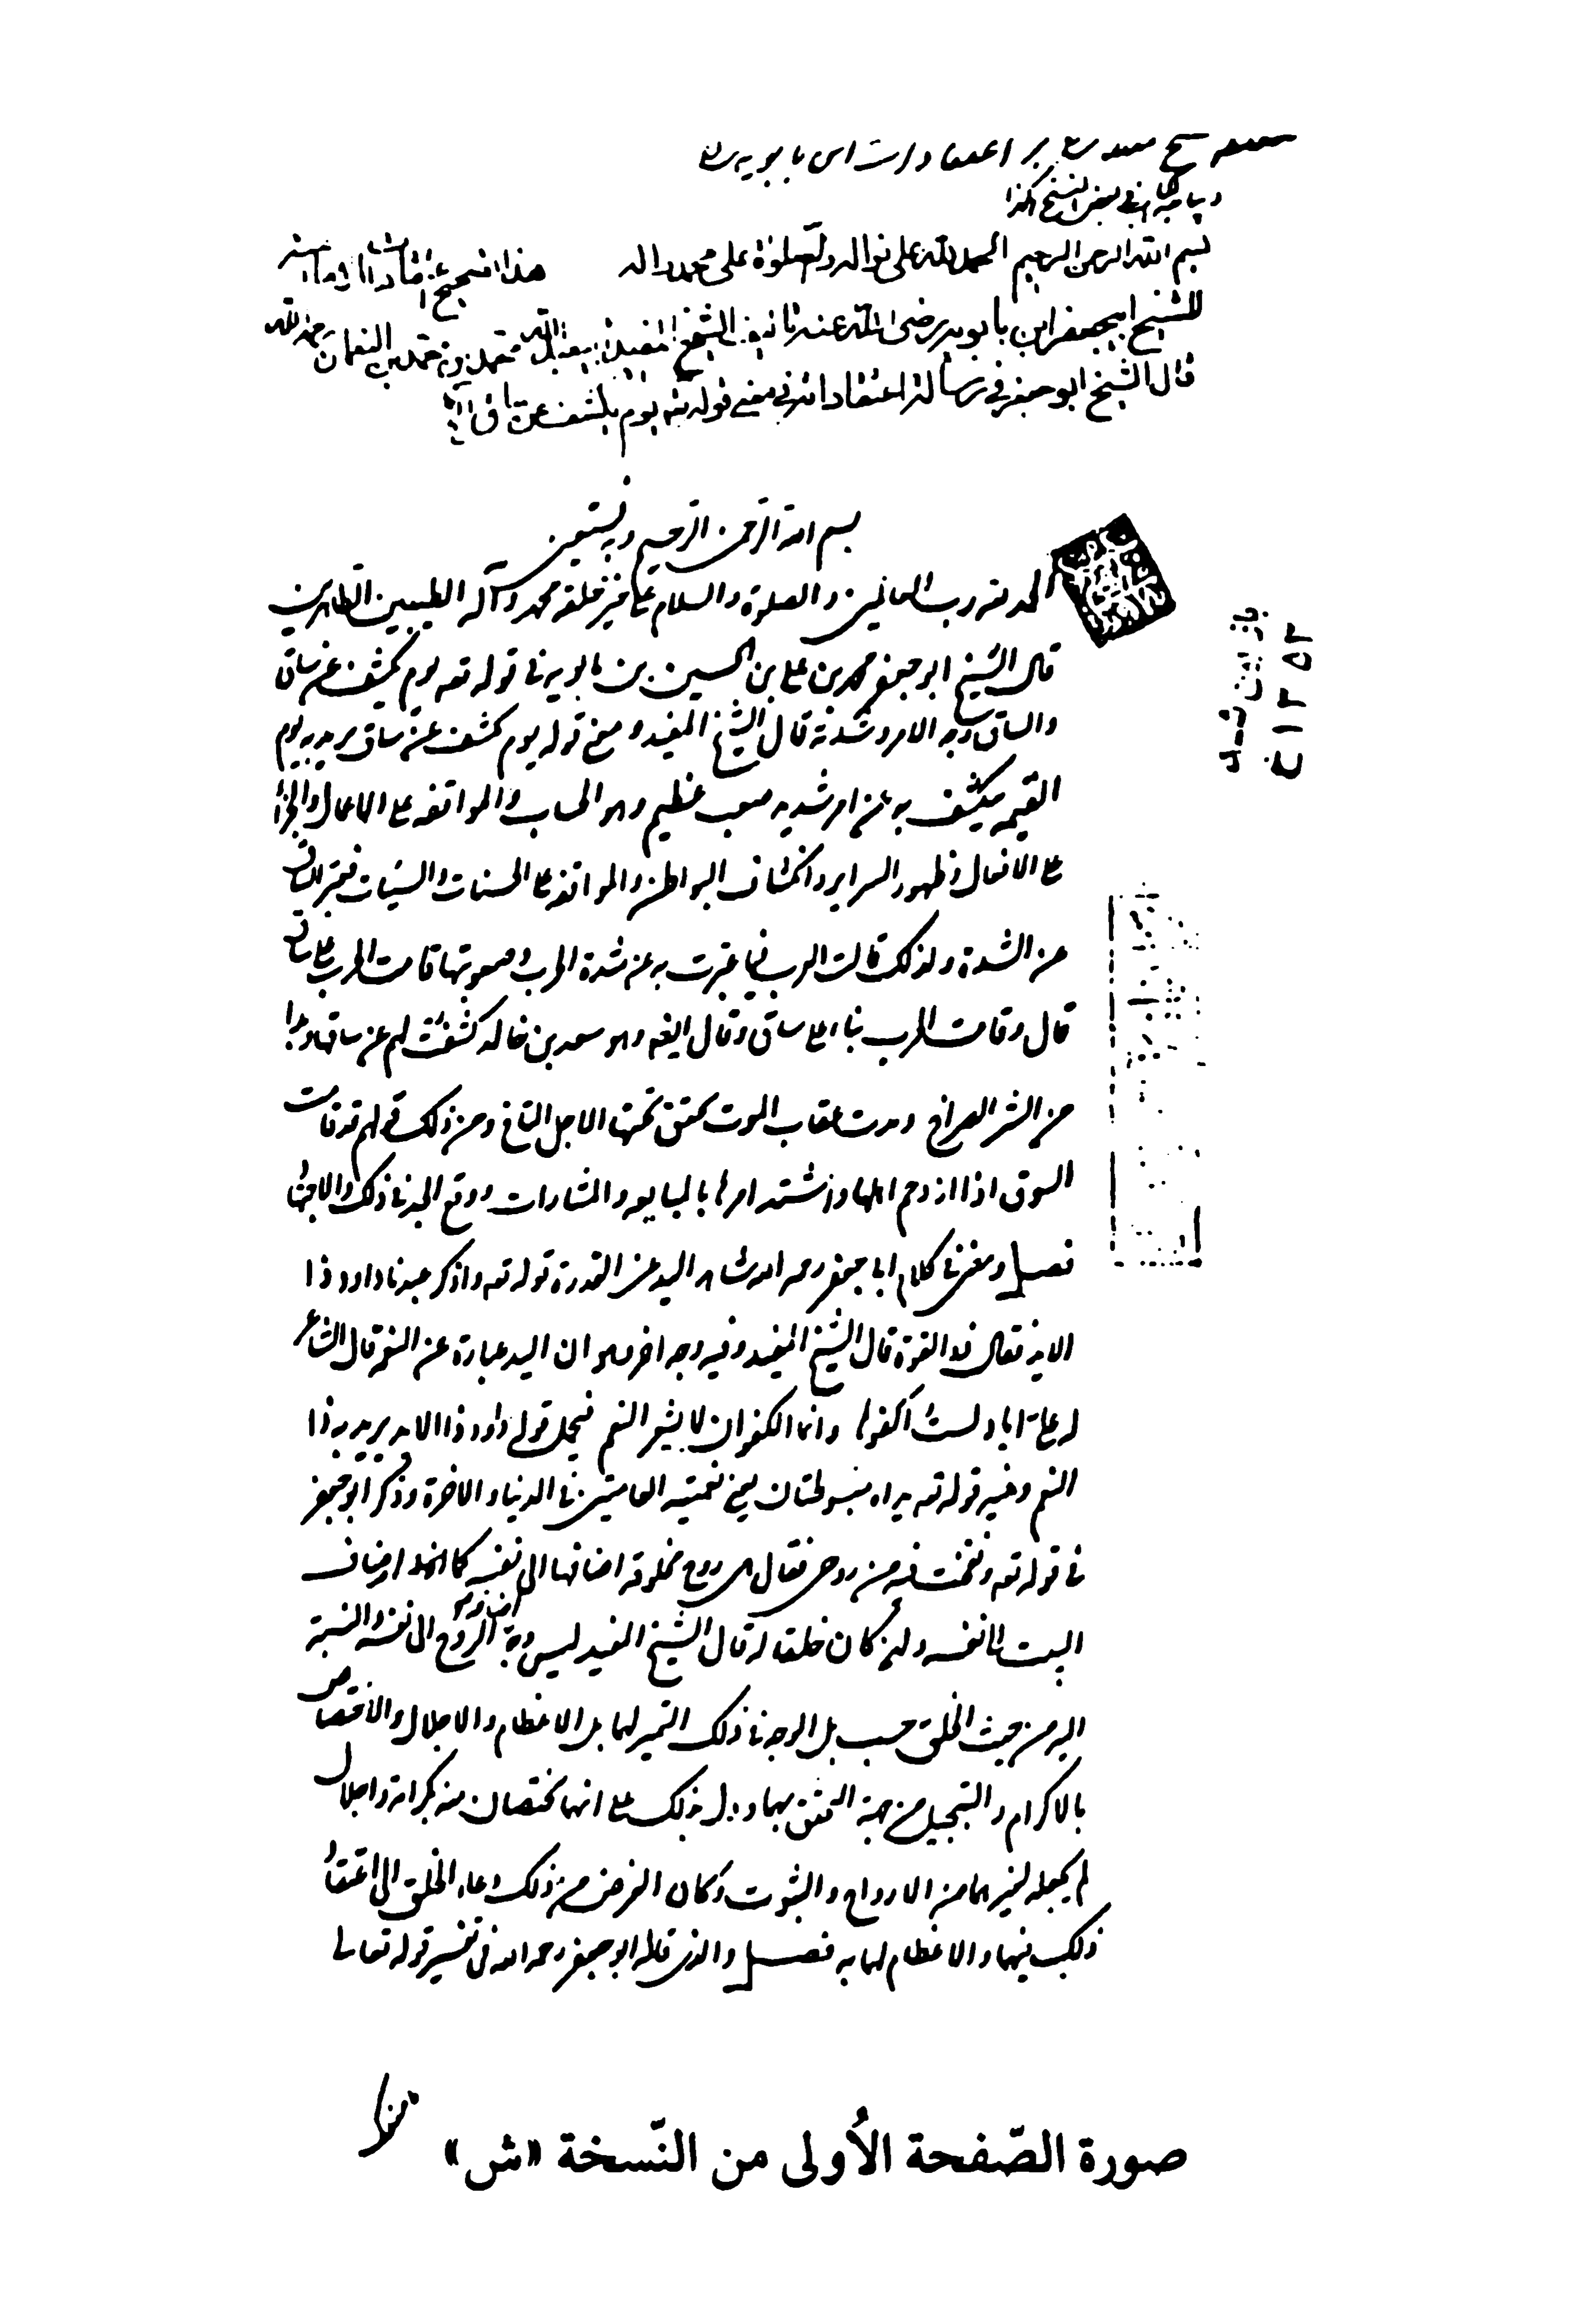 بر اعتقادات ابن بابويه
في بعض النسخ هكذا
بسم الله الرحمن الرحيم الحمد لله على نواله والصلوة على محمد واله هذا تصحيح اعتقادات الامامية
للشيخ ابيجعفر ابن بابويه رضى الله عنه تاليف الشيخ المفيد ابيعبد الله محمد بن محمد بن النعمان رحمه الله
قال الشيخ ابو جعفر في رسالة اعتقاداته في معنى قوله تعه يوم يكشف عن ساق
بسم الله الرحمن الرحيم وبه نستعين
الحمد لله رب العالمين والصلوة والسلام على خير خلقه محمد وآله الطيبين الطاهرين
قال الشيخ ابو جعفر محمد بن على بن الحسين بن بابويه في قوله تعه يوم يكشف عن ساق
والساق وجه الامر وشدته قال الشيخ المفيد ومعنى قوله يوم يكشف عن ساق يريد به يوم
القيمه يكشف به عن امر شديد صعب عظيم وهو الحساب والمواقفه على الاعمال والجزاء
على الافعال وظهور السراير وانكشاف البواطن والمواقفه على الحسنات والسيئات فعبر بالساق
عن الشدة ولذلك قالت العرب فيما عبرت به عن شدة الحرب وصعوبتها قامت الحرب على ساق
قال وقامت الحرب بنا على ساق وقال ايضه وهو سعد بن خالد كشفت لهم عن ساقها وبدا
من الشر الصراح وبدت عقاب الموت يخفق تحتها الاجل المتاح ومن ذلك قولهم قد قامت
السوق اذا ازدحم اهلها واشتد امرها بالمبايعه والمشارات ووقع الجد في ذلك والاجتهاد
فصل ومضى في كلام ابى جعفر رحمه الله شاهد اليد عن القدرة قوله تعه واذكر عبدنا داود ذا
الايد فقال ذو القوة قال الشيخ المفيد وفيه وجه اخر وهو ان اليد عبارة عن النعم قال الشاعر
له على اياد لست اكفرها وانما الكفر ان لا يشكر النعم فيحمل قوله داود ذا الايد يريد به ذا
النعم ومنه قوله تعه يداه مبسوطتان يعنى نعمتيه العامتين في الدنيا والاخرة وذكر ابو جعفر
في قوله تعه ونفخت فيه من روحى فقال هى روح مخلوقة اضافها الى نفسه كما اضاف
البيت الى نفسه وان كان خلقا له قال الشيخ المفيد ليس وجه اضافة الروح الى نفسه والنسبة
اليه من حيث الخلق حسب بل الوجه في ذلك التميز لهما بالاعظام والاجلال والاختصاص
بالاكرام والتبجيل من جهة التحقق بهما ودل بذلك على انهما يختصان منه بكرامة واجلال
لم يجعله لغيرهما من الارواح والبيوت وكان الغرض من ذلك دعاء الخلق الى اعتقاد
ذلك فيهما والاعظام لهما به فصل والذى قاله ابو جعفر رحمه الله في تفسير قوله تعالى
صورة الصّفحة الأُولى من النّسخة «ش»